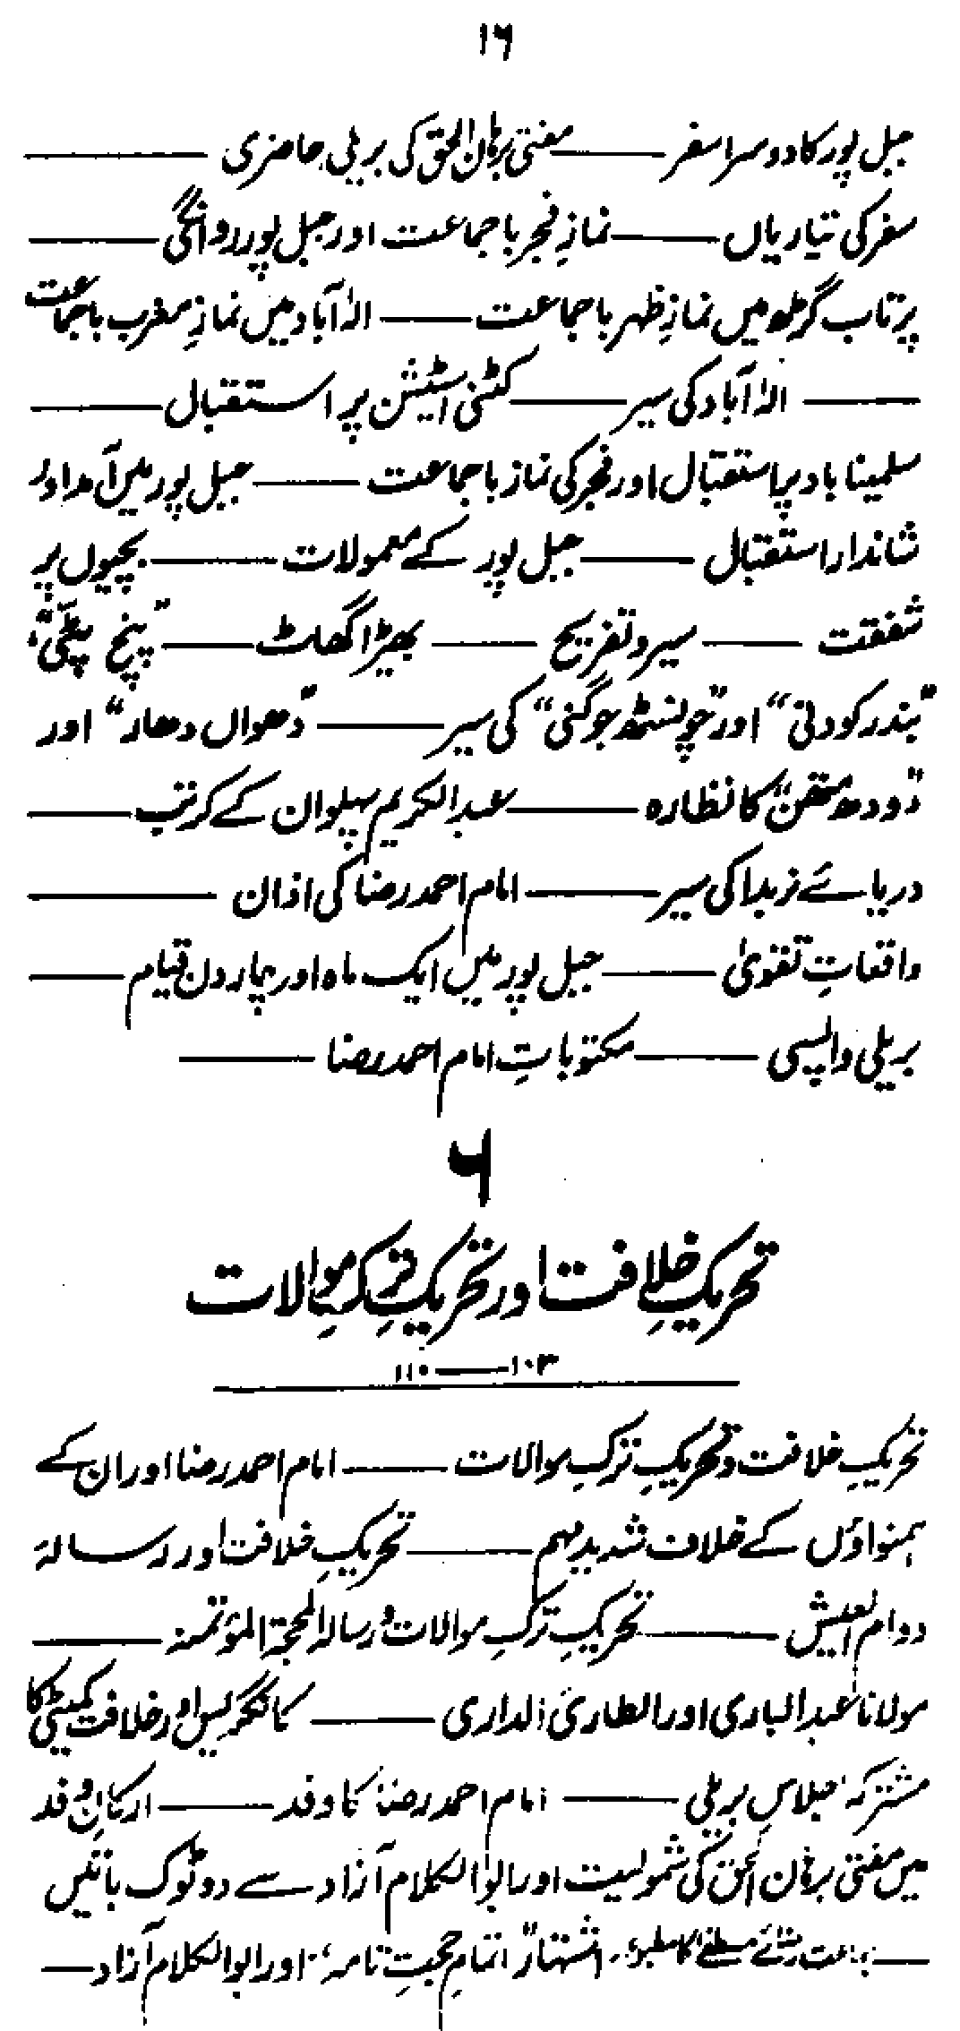 ۱۶
جبل پور کا دوسرا سفر ——— مفتی برہان الحق کی بریلی حاضری ———
سفر کی تیاریاں ——— نمازِ فجر باجماعت اور جبل پور روانگی ———
پرتاب گڑھ میں نمازِ ظہر باجماعت ——— الٰہ آباد میں نمازِ مغرب باجماعت
——— الٰہ آباد کی سیر ——— کٹنی اسٹیشن پر استقبال ———
سلمینا باد پر استقبال اور فجر کی نماز باجماعت ——— جبل پور میں آمد اور
شاندار استقبال ——— جبل پور کے معمولات ——— بچیوں پر
شفقت ——— سیر و تفریح ——— بھیڑا گھاٹ ——— "پنچ پٹی"،
"بندر کودنی" اور "چونسٹھ جوگنی" کی سیر ——— "دھواں دھار" اور
"دودھ متھن" کا نظارہ ——— عبدالکریم پہلوان کے کرتب ———
دریائے نربدا کی سیر ——— امام احمد رضا کی اذان ———
واقعاتِ تقویٰ ——— جبل پور میں ایک ماہ اور چار دن قیام ———
بریلی واپسی ——— مکتوباتِ امام احمد رضا ———
۶
تحریکِ خلافت اور تحریکِ ترکِ موالات
۱۰۳ —— ۱۱۰
تحریکِ خلافت و تحریکِ ترکِ موالات ——— امام احمد رضا اور ان کے
ہمنواؤں کے خلاف شدید مہم ——— تحریکِ خلافت اور رسالہ
دوام العیش ——— تحریکِ ترکِ موالات و رسالہ المحجۃ المؤتمنہ ———
مولانا عبدالباری اور الطاری الداری ——— کانگریس اور خلافت کمیٹی کا
مشترکہ اجلاسِ بریلی ——— امام احمد رضا کا وفد ——— ارکانِ وفد
میں مفتی برہان الحق کی شمولیت اور ابوالکلام آزاد سے دو ٹوک باتیں
——— جماعت رضائے مصطفےٰ کا مطبوعہ اشتہار "اتمامِ حجتِ تامہ" اور ابوالکلام آزاد ———